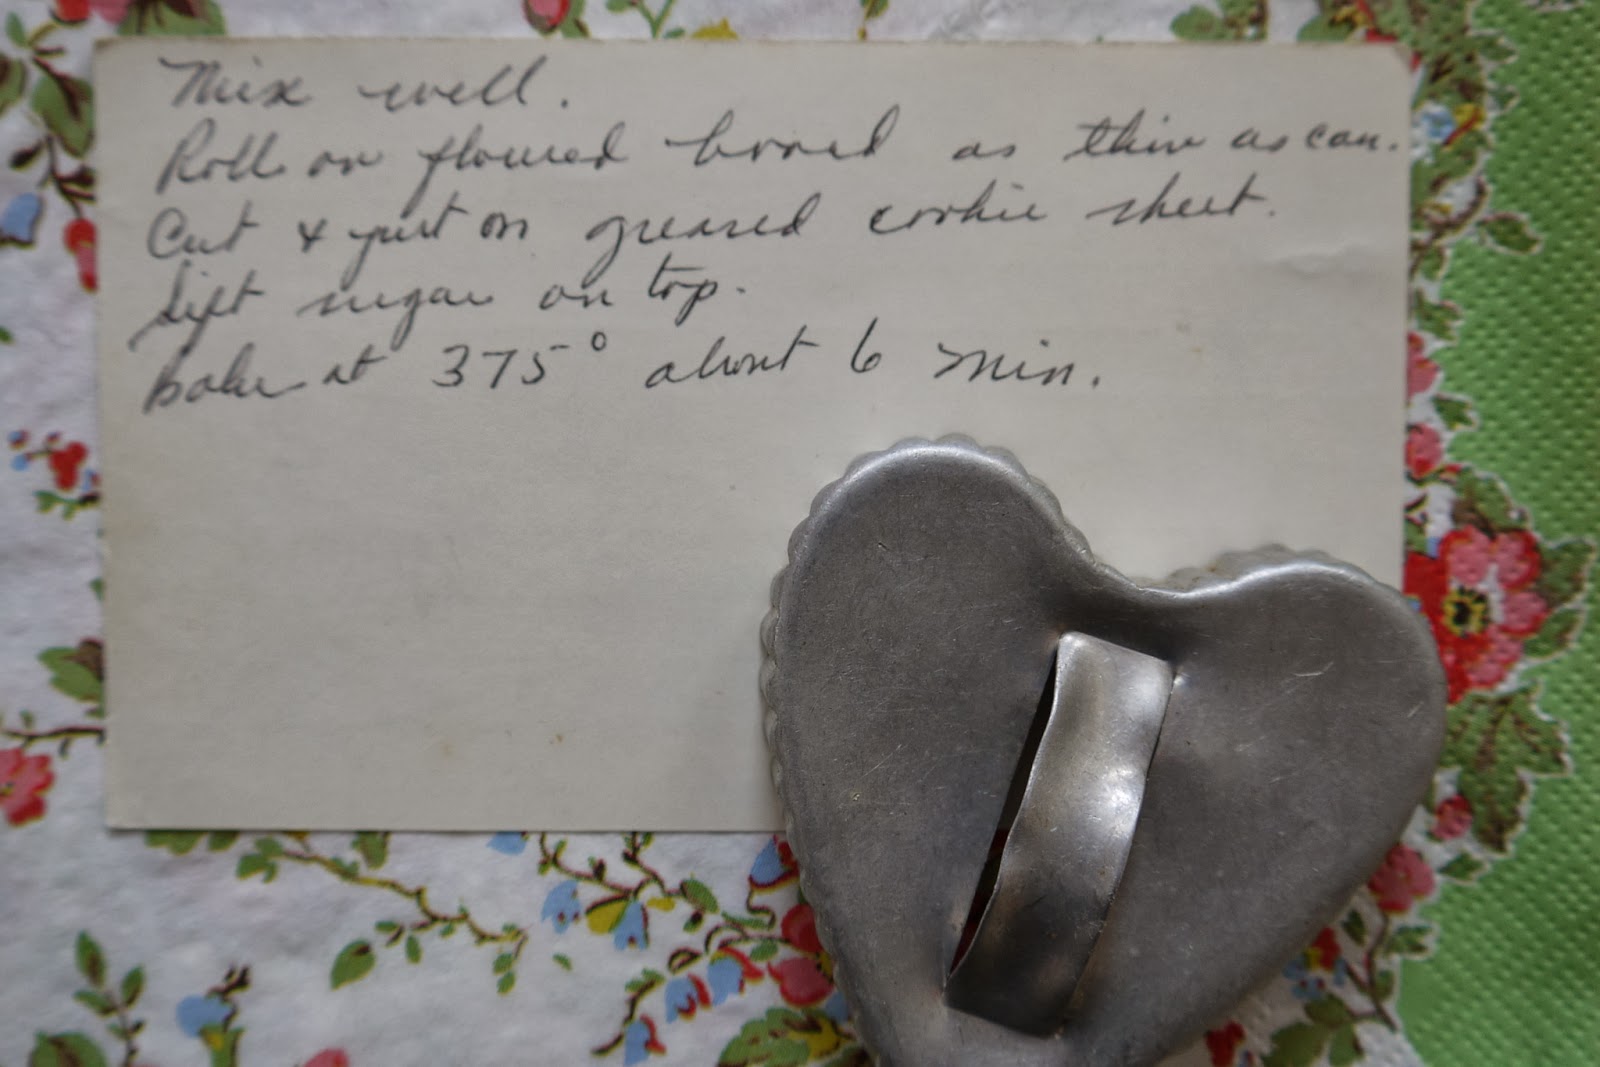 Mix well.
Roll on floured board as thin as can.
Cut & put on greased cookie sheet.
Sift sugar on top.
Bake at 375° about 6 min.